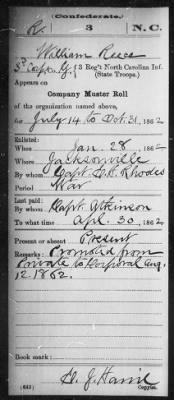 Confederate.
R. 3 N.C.
William Reece
Co. G, 3 Reg't North Carolina Inf.
(State Troops.)
Appears on
Company Muster Roll
of the organization named above,
for July 14 to Oct. 31, 1862
Enlisted:
When Jan. 28 1862
Where Jacksonville
By whom Capt. Rhodes
Period War
Last paid:
By whom Capt. Atkinson
To what time Apl. 30 1862
Present or absent Present
Remarks: Promoted from
Private to Corporal Aug.
12. 1862.
Book mark:
(642) Copyist.